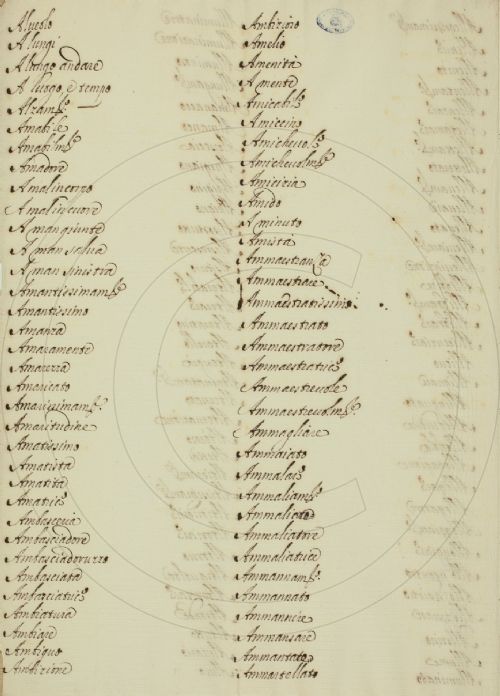 Alveolo
A lungi
A lungo andare
A luogo, e tempo
Alzam.to
Amabile
Amabilm.te
Amadore
A malincorpo
A malincuore
A man giunte
A man salva
A man sinistra
Amantissimam.te
Amantissimo
Amanza
Amaramente
Amarezza
Amaricato
Amarissimam.te
Amaritudine
Amatissimo
Amatista
Amatita
Amatrice
Ambasceria
Ambasciadore
Ambasciadoruzzo
Ambasciata
Ambasciatrice
Ambiatura
Ambiare
Ambiguo
Ambizione
Ambizioso
Amelio
Amenità
A mente
Amicabile
Amiccino
Amichevole
Amichevolm.te
Amicizia
Amido
A minuto
Amistà
Ammaestranza
Ammaestrare
Ammaestratissimo
Ammaestrato
Ammaestratore
Ammaestratrice
Ammaestrevole
Ammaestrevolm.te
Ammagliare
Ammaiato
Ammaliare
Ammaliam.to
Ammaliato
Ammaliatore
Ammaliatrice
Ammannam.to
Ammannato
Ammannire
Ammansare
Ammantato
Ammantellato